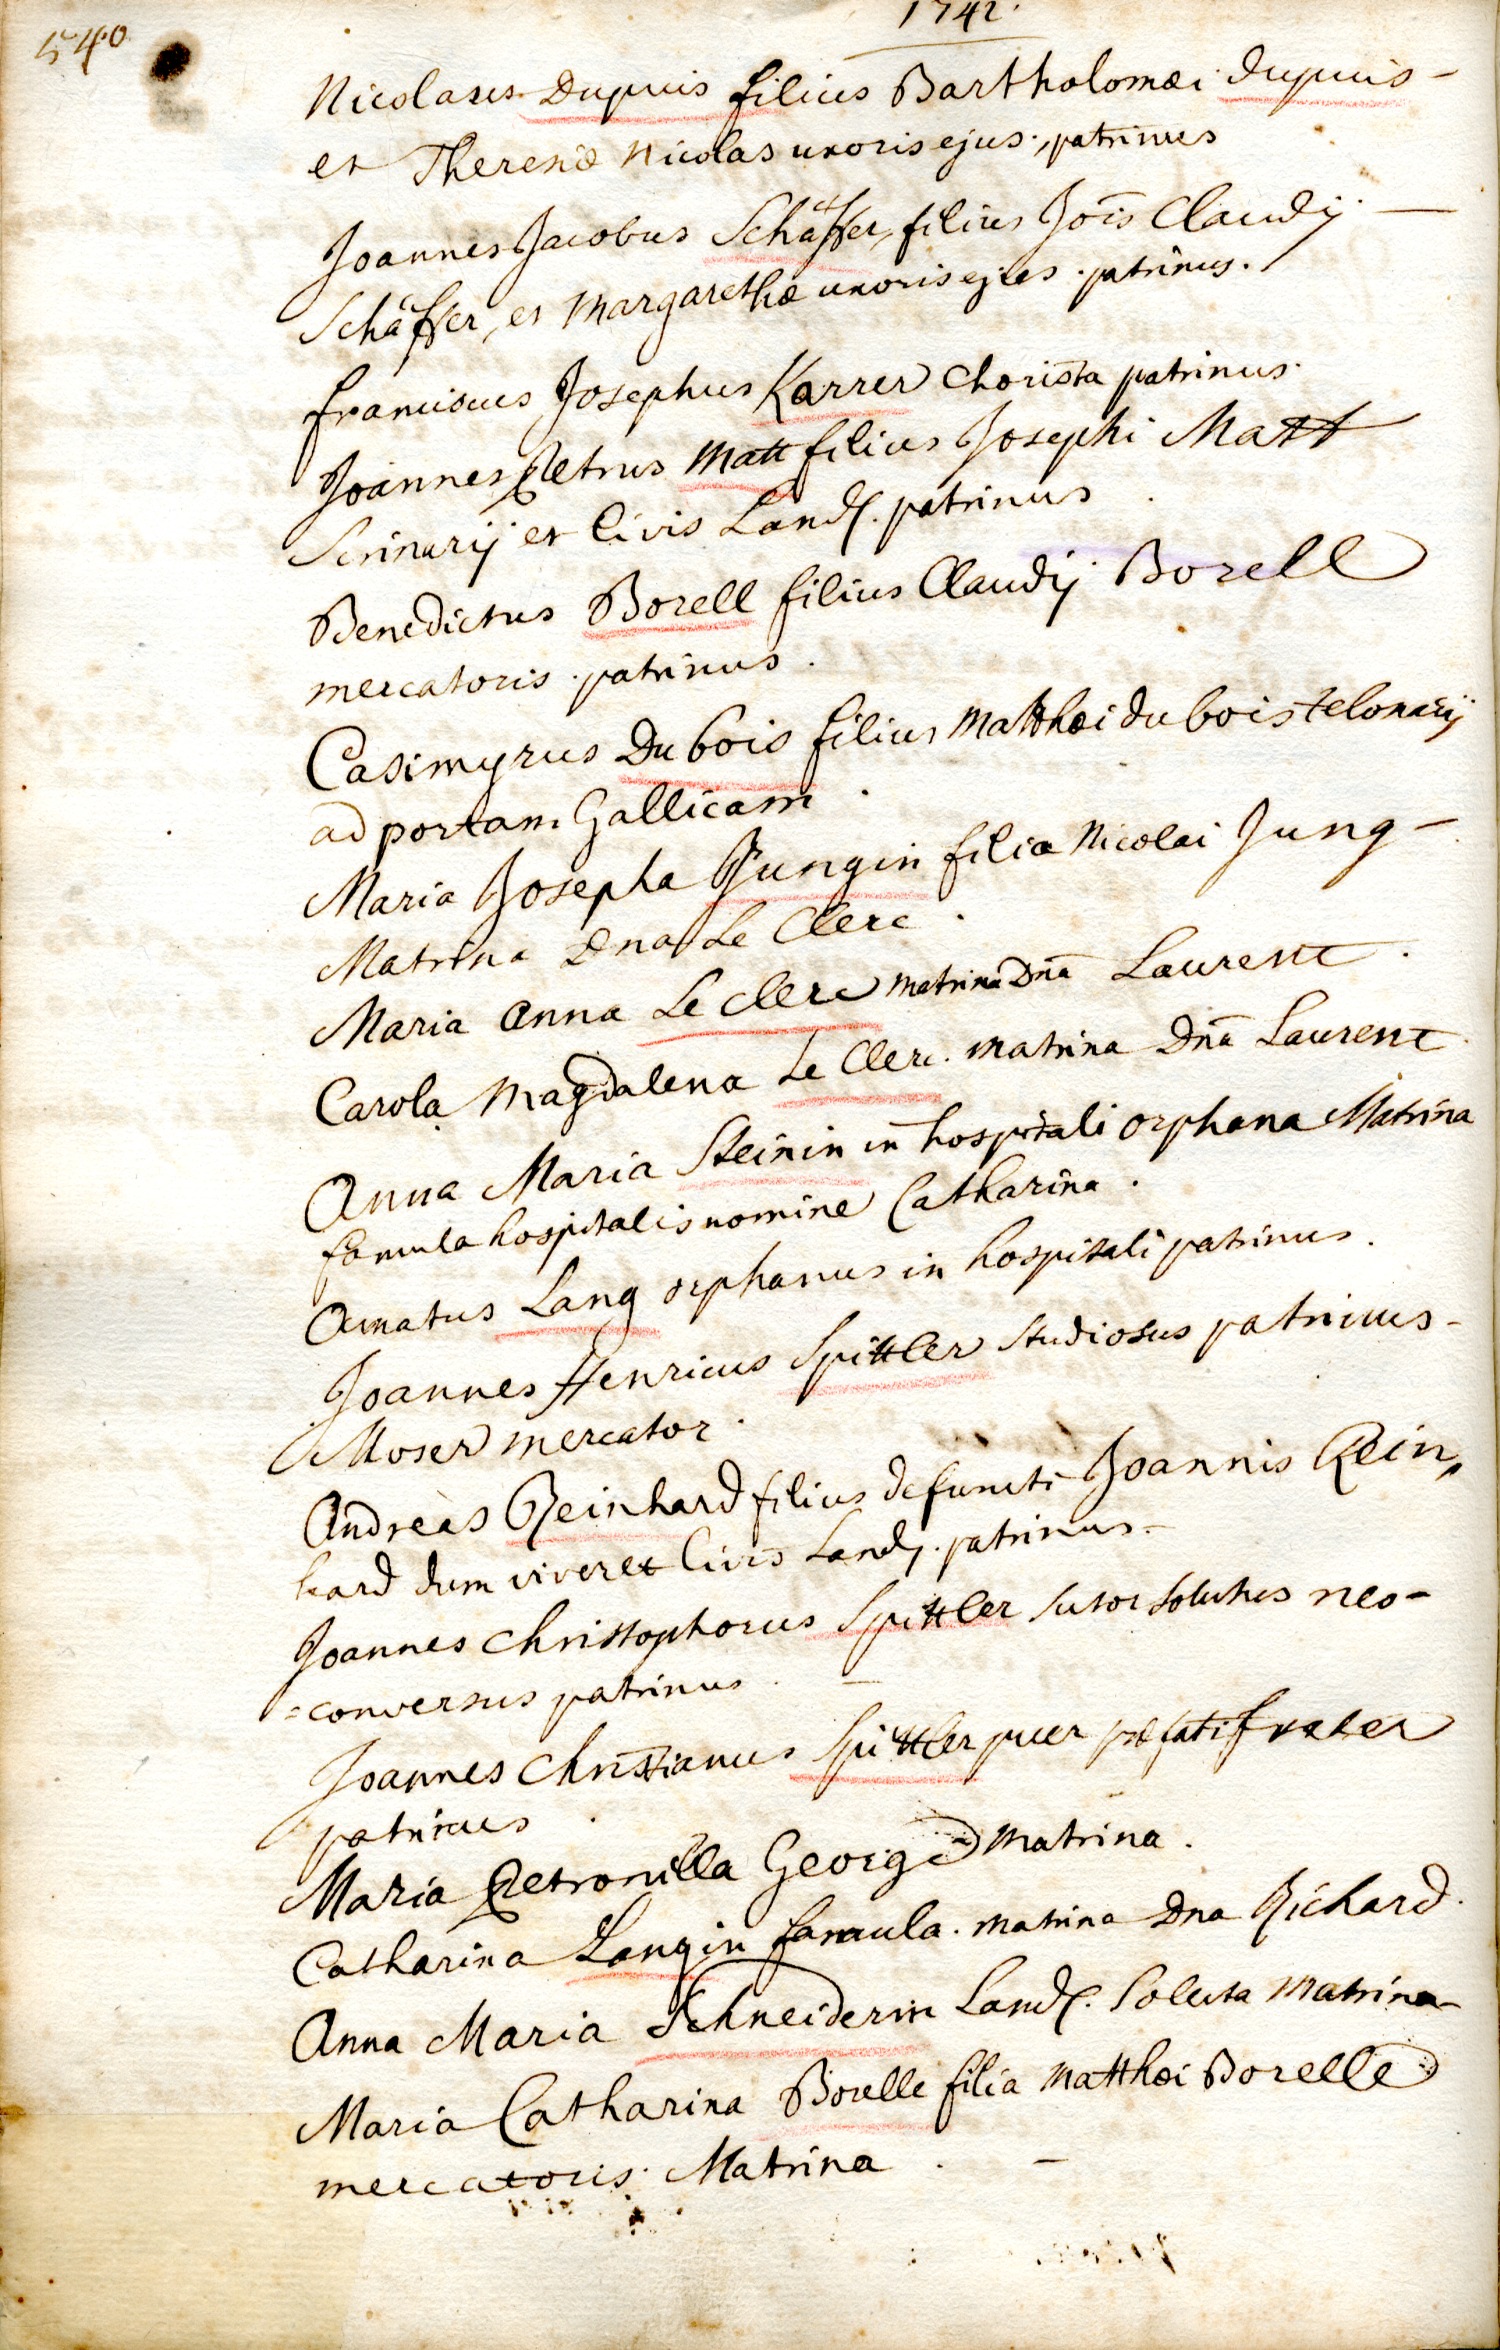 540
1742.
Nicolaus Dupuis filius Bartholomæi dupuis -
et Theresiæ Nicolas uxoris ejus. patrinus
Joannes Jacobus Schäffer, filius Jois Claudij. —
Schäffer, et Margarethæ uxoris ejus. patrinus.
franciscus Josephus Karrer Chorista patrinus.
Joannes Petrus Matt filius Josephi Matt
Scrinarij et Civis Land. patrinus .
Benedictus Borell filius Claudij Borell
mercatoris. patrinus .
Casimyrus Du bois filius Matthæi du bois telonarij
ad portam Gallicam .
Maria Josepha Jungin filia Nicolai Jung -
Matrina Dna Le Clerc .
Maria Anna Le Clerc Matrina Dna Laurent .
Carola Magdalena Le Clerc. Matrina Dna Laurent.
Anna Maria Steinin in hospitali orphana Matrina
famula hospitalis nomine Catharina .
Amatus Lang orphanus in hospitali patrinus.
Joannes Henricus Spittler Studiosus patrinus -
Moser mercator .
Andreas Reinhard filius defuncti Joannis Rein„
hard dum viveret Civis Land. patrinus. -
Joannes Christophorus Spittler Sutor Solutus neo-
=conversus patrinus . —
Joannes Christianus Spittler puer præfati frater
patrinus .
Maria Petronilla George Matrina .
Catharina Langin famula. Matrina Dna Richard.
Anna Maria Schneiderin Land. Soluta Matrina -
Maria Catharina Borelle filia Matthæi Borelle
mercatoris. Matrina . —